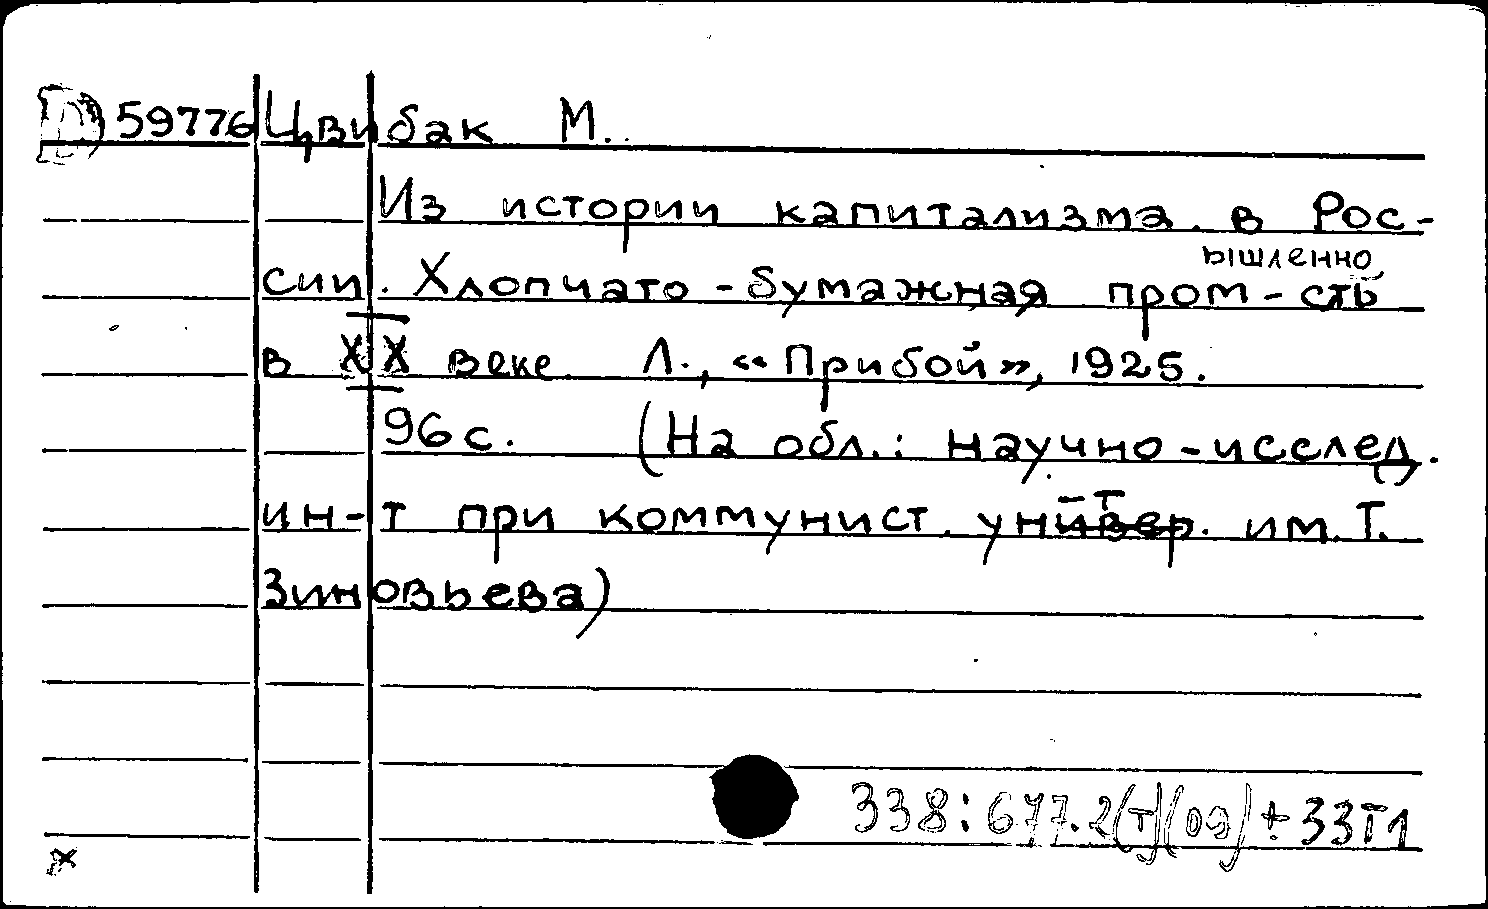 D 59776 Цвибак М.
Из истории капитализма в Рос-
сии. Хлопчато-бумажная пром-ышленность
в XX веке Л., «Прибой», 1925.
96 с. (На обл.: Научно-исслед.
ин-т при коммунист. ун-т. им. Т.
Зиновьева)
338:677.2(Т)(09)+33Т1